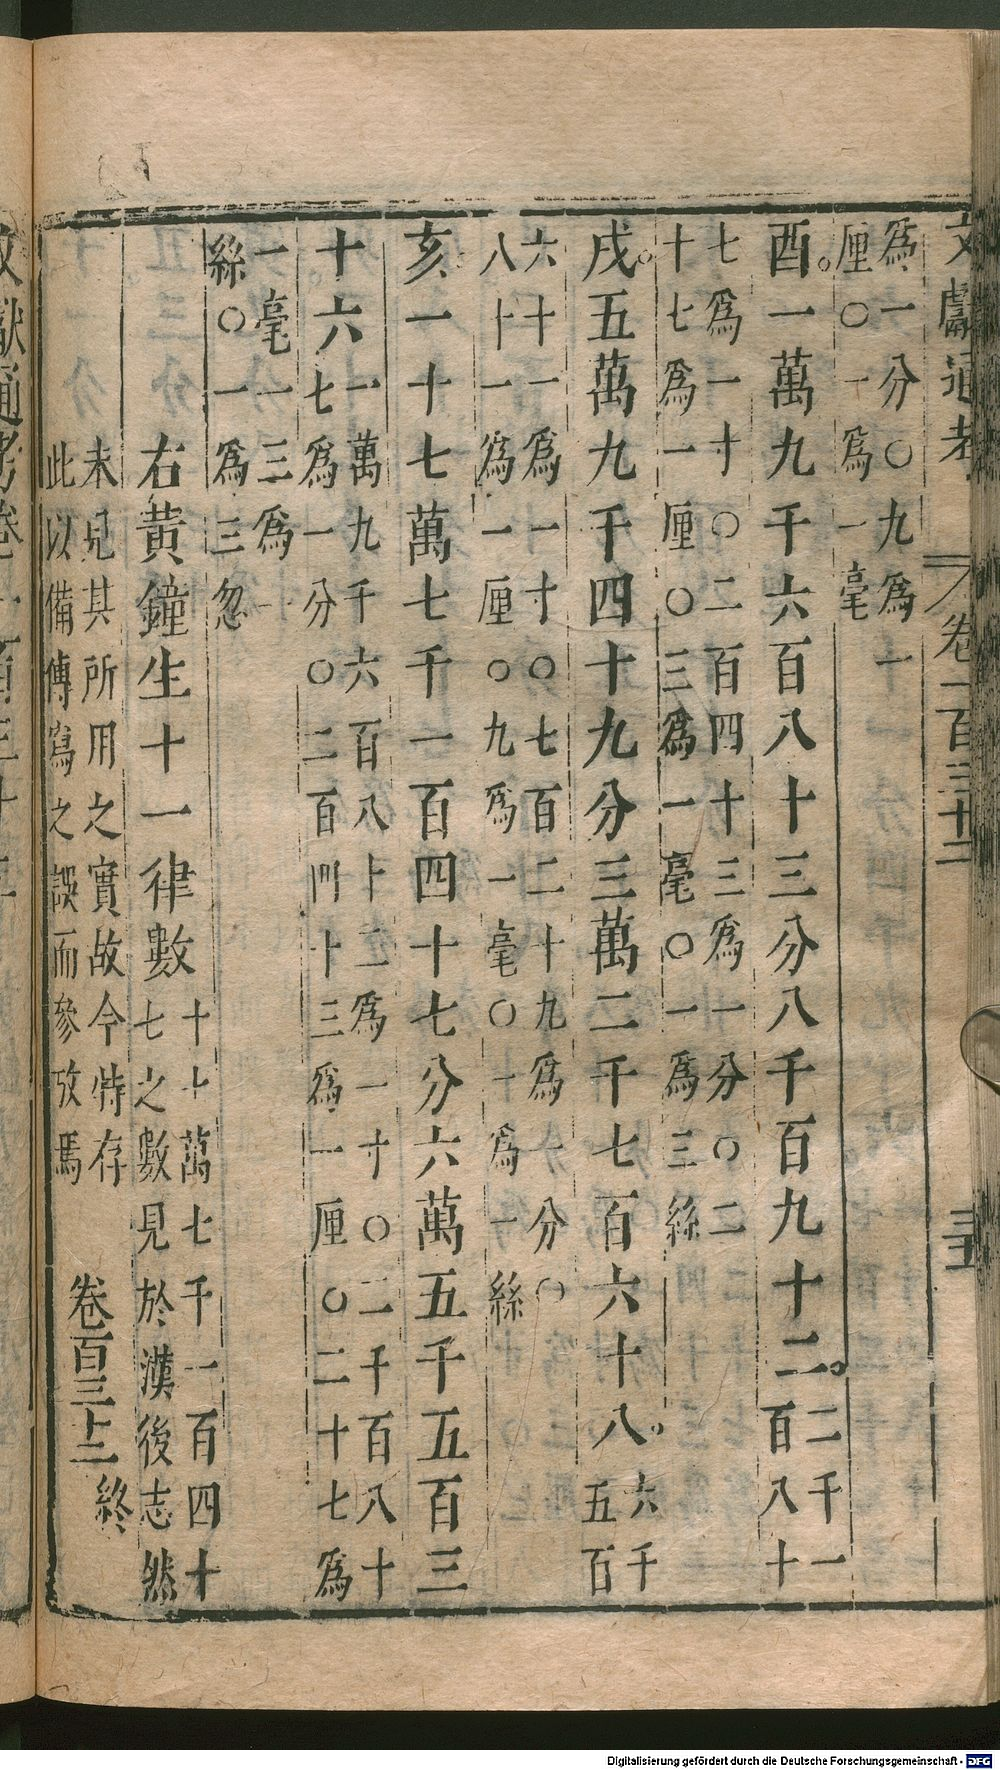 文獻通考 卷一百三十二 三五
爲一分〇九爲一
厘〇一爲一毫
酉一萬九千六百八十三分八千百九十二
二千一
百八十
七爲一寸〇二百四十三爲一分〇二
十七爲一厘〇三爲一毫〇一爲三絲
戌五萬九千四十九分三萬二千七百六十八
六千
五百
六十一爲一寸〇七百二十九爲一分〇
八十一爲一厘〇九爲一毫〇一爲一絲
亥一十七萬七千一百四十七分六萬五千五百三
十六
一萬九千六百八十三爲一寸〇二千百八十
七爲一分〇二百四十三爲一厘〇二十七爲
一毫一三爲
絲〇一爲三忽
右黃鐘生十一律數
十七萬七千一百四十
七之數見於漢後志然
未見其所用之實故今特存
此以備傳寫之誤而參攷焉
卷百三十二終
Digitalisierung gefördert durch die Deutsche Forschungsgemeinschaft - DFG